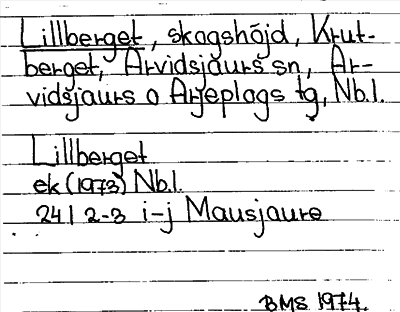 Lillberget, skogshöjd, Krut-
berget, Arvidsjaurs sn, Ar-
vidsjaurs o Arjeplogs tg, Nb.l.
Lillberget
ek (1973) Nb.l.
24 I 2-3 i-j Mausjaure
BMS 1974.